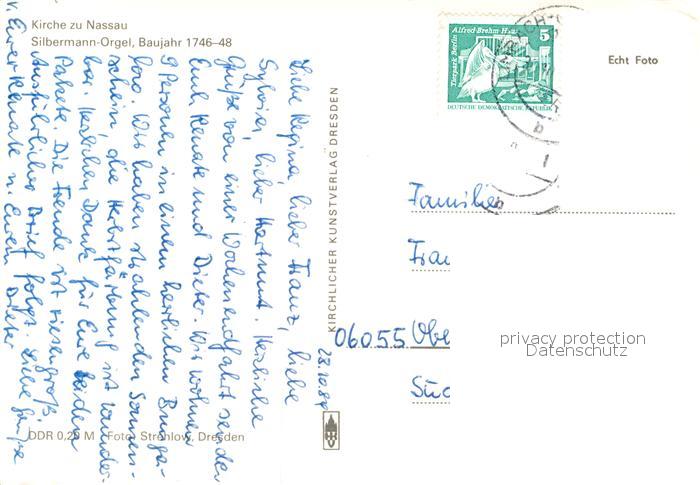 Kirche zu Nassau
Silbermann-Orgel, Baujahr 1746–48
Alfred-Brehm-Haus
Tierpark Berlin
5
DEUTSCHE DEMOKRATISCHE REPUBLIK
Echt Foto
28.10.84
Liebe Regina, lieber Franz, liebe
Sylvia, lieber Hartmut. Herzliche
Grüße von einer Wochenendfahrt senden
Euch Renate und Dieter. Wir wohnen
9 Personen in einem herrlichen
Wir haben strahlenden Sonnen-
schein, die Herbstfärbung ist wunder-
bar. Herzlichen Dank für Eure beiden
Pakete. Die Freude ist riesengroß.
Ausführlicher Brief folgt. Liebe Grüße
v. Eurer Renate u. Eurem Dieter
KIRCHLICHER KUNSTVERLAG DRESDEN
Familie
Fra
06055 Obe
privacy protection
Datenschutz
DDR 0,20 M Foto: Strohlow, Dresden